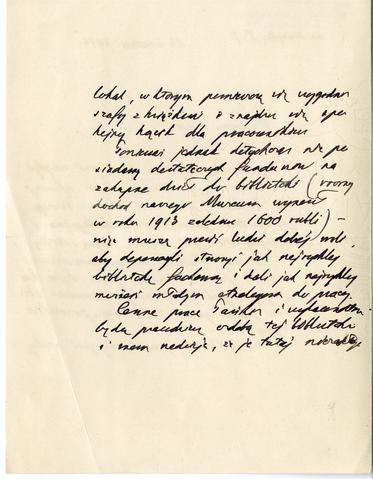 lokal, w którym pomieszczą się wygodnie
szafy z książkami i znajdzie się spo-
kojny kącik dla pracowników
Ponieważ jednak dotychczas nie po-
siadamy dostatecznych funduszów na
zakupno dzieł do biblioteki (roczny
dochód naszego Muzeum wynosił
w roku 1913 zaledwie 1600 rubli) –
więc muszę prosić ludzi dobrej woli,
aby dopomogli stworzyć jak najrychlej
bibliotekę fachową i dali jak najrychlej
możność młodym do pracy.
Cenne prace Pańskie i
będą prawdziwą ozdobą tej biblioteki
i mam nadzieję, że je tutaj